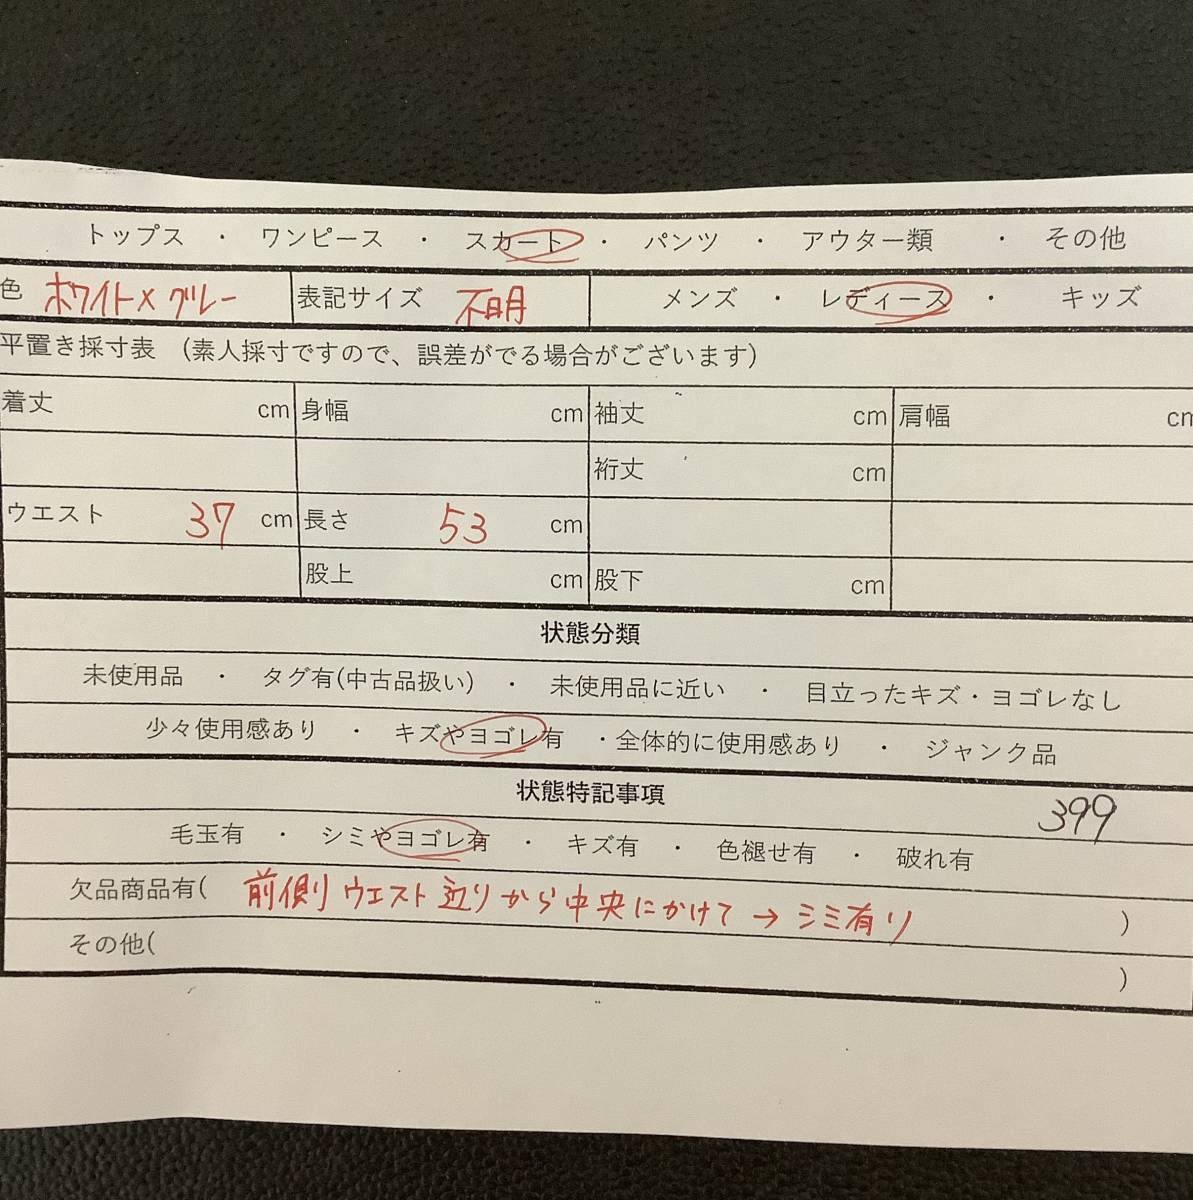 トップス ・ ワンピース ・ スカート ・ パンツ ・ アウター類 ・ その他
色 ホワイト×グレー 表記サイズ 不明 メンズ ・ レディース ・ キッズ
平置き採寸表 (素人採寸ですので、誤差がでる場合がございます)
着丈 cm 身幅 cm 袖丈 cm 肩幅 cm
裄丈 cm
ウエスト 37 cm 長さ 53 cm
股上 cm 股下 cm
状態分類
未使用品 ・ タグ有(中古品扱い) ・ 未使用品に近い ・ 目立ったキズ・ヨゴレなし
少々使用感あり ・ キズやヨゴレ有 ・全体的に使用感あり ・ ジャンク品
状態特記事項
399
毛玉有 ・ シミやヨゴレ有 ・ キズ有 ・ 色褪せ有 ・ 破れ有
欠品商品有( 前側ウエスト辺りから中央にかけて→シミ有り )
その他( )